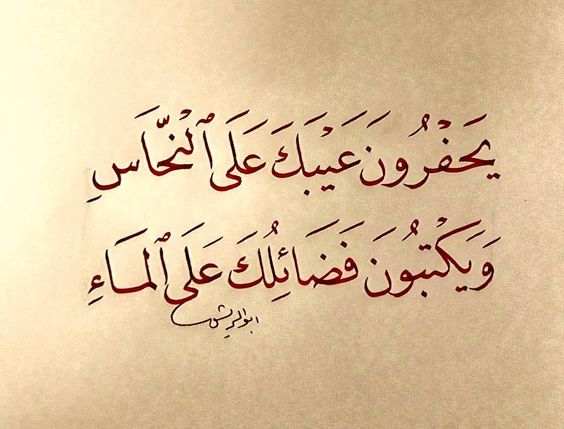 يَحْفرُونَ عَيْبَكَ عَلَى ٱلْنّحَاسِ
وَيَكْتبُونَ فَضَائِلُكَ عَلَى ٱلمَاءِ
ابو الريش